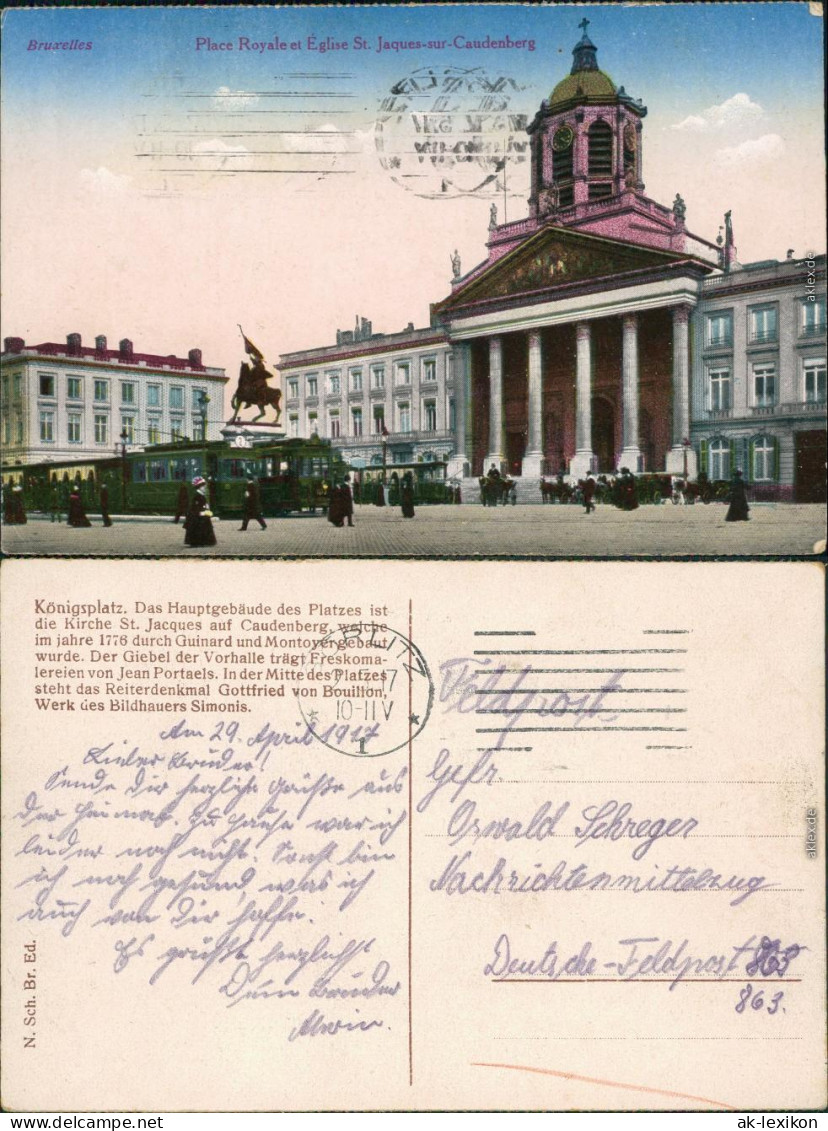 Bruxelles
Place Royale et Église St. Jaques-sur-Caudenberg
aklex.de
Königsplatz. Das Hauptgebäude des Platzes ist
die Kirche St. Jacques auf Caudenberg, welche
im jahre 1776 durch Guinard und Montoyer gebaut
wurde. Der Giebel der Vorhalle trägt Freskoma-
lereien von Jean Portaels. In der Mitte des Platzes
steht das Reiterdenkmal Gottfried von Bouillon,
Werk des Bildhauers Simonis.
10-11V
1
Am 29. April 1917
Lieber Bruder!
Sende dir herzliche Grüße aus
der Heimat. Zu Hause war ich
leider noch nicht. Sonst bin
ich noch gesund, was ich
auch von Dir hoffe.
Es grüßt herzlichst
Dein Bruder
Alwin.
N. Sch. Br. Ed.
Feldpost
Gefr
Oswald Schreger
Nachrichtenmittelzug
Deutsche-Feldpost 863
863.
aklex.de
www.ak-lexikon.de
ak-lexikon